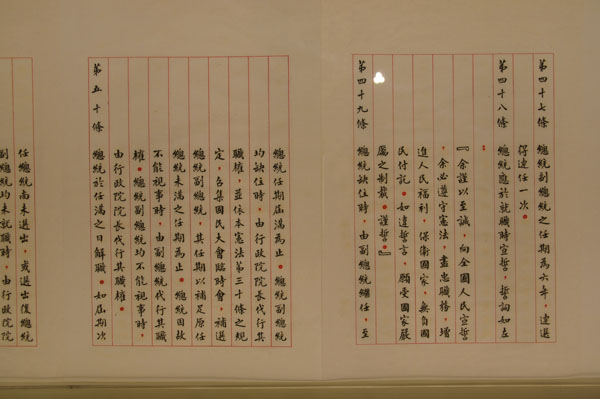 第四十七條 總統副總統之任期為六年，連選
得連任一次。
第四十八條 總統應於就職時宣誓，誓詞如左
：
『余謹以至誠，向全國人民宣誓
，余必遵守憲法，盡忠職務，增
進人民福利，保衛國家，無負國
民付託。如違誓言，願受國家嚴
厲之制裁。謹誓。』
第四十九條 總統缺位時，由副總統繼任，至
總統任期屆滿為止。總統副總統
均缺位時，由行政院院長代行其
職權，並依本憲法第三十條之規
定，召集國民大會臨時會，補選
總統副總統，其任期以補足原任
總統未滿之任期為止。總統因故
不能視事時，由副總統代行其職
權。總統副總統均不能視事時，
由行政院院長代行其職權。
第五十條 總統於任滿之日解職。如屆期次
任總統尚未選出，或選出後總統
副總統均未就職時，由行政院院